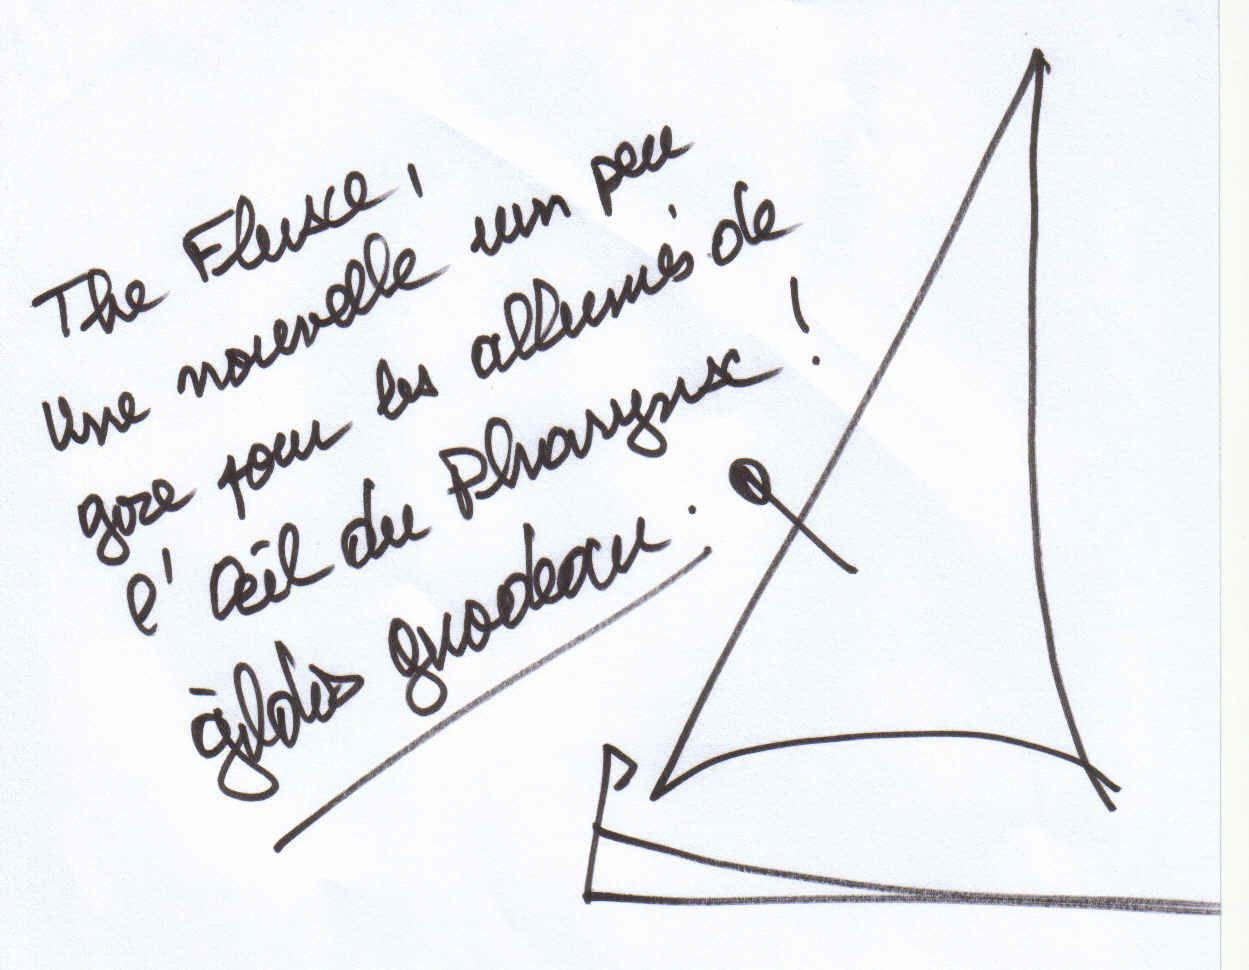 The Flusce,
Une nouvelle um peu
gore pour les allumés de
l' Œil du Pharynx !
gildas gruodeau.